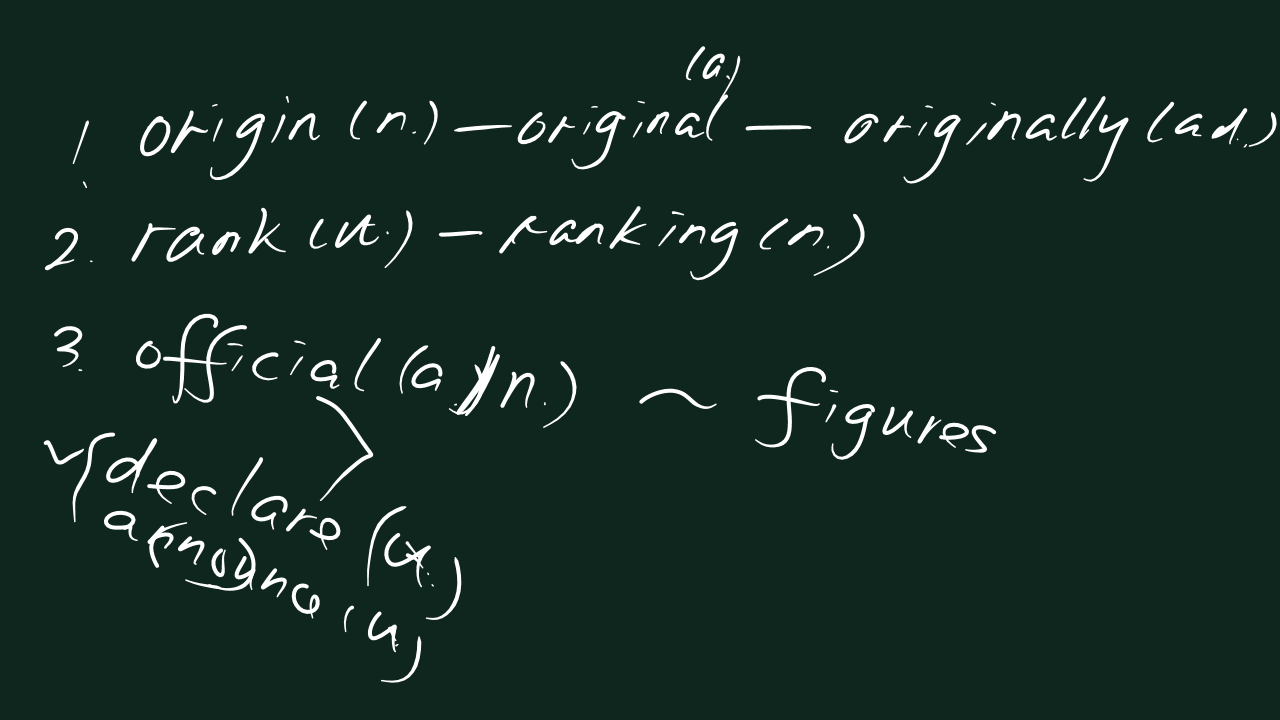 1. origin (n.) — original (a.) — originally (ad.)
2. rank (vt.) — ranking (n.)
3. official (a./n.) ~ figures
declare (vt.)
announce (vt.)